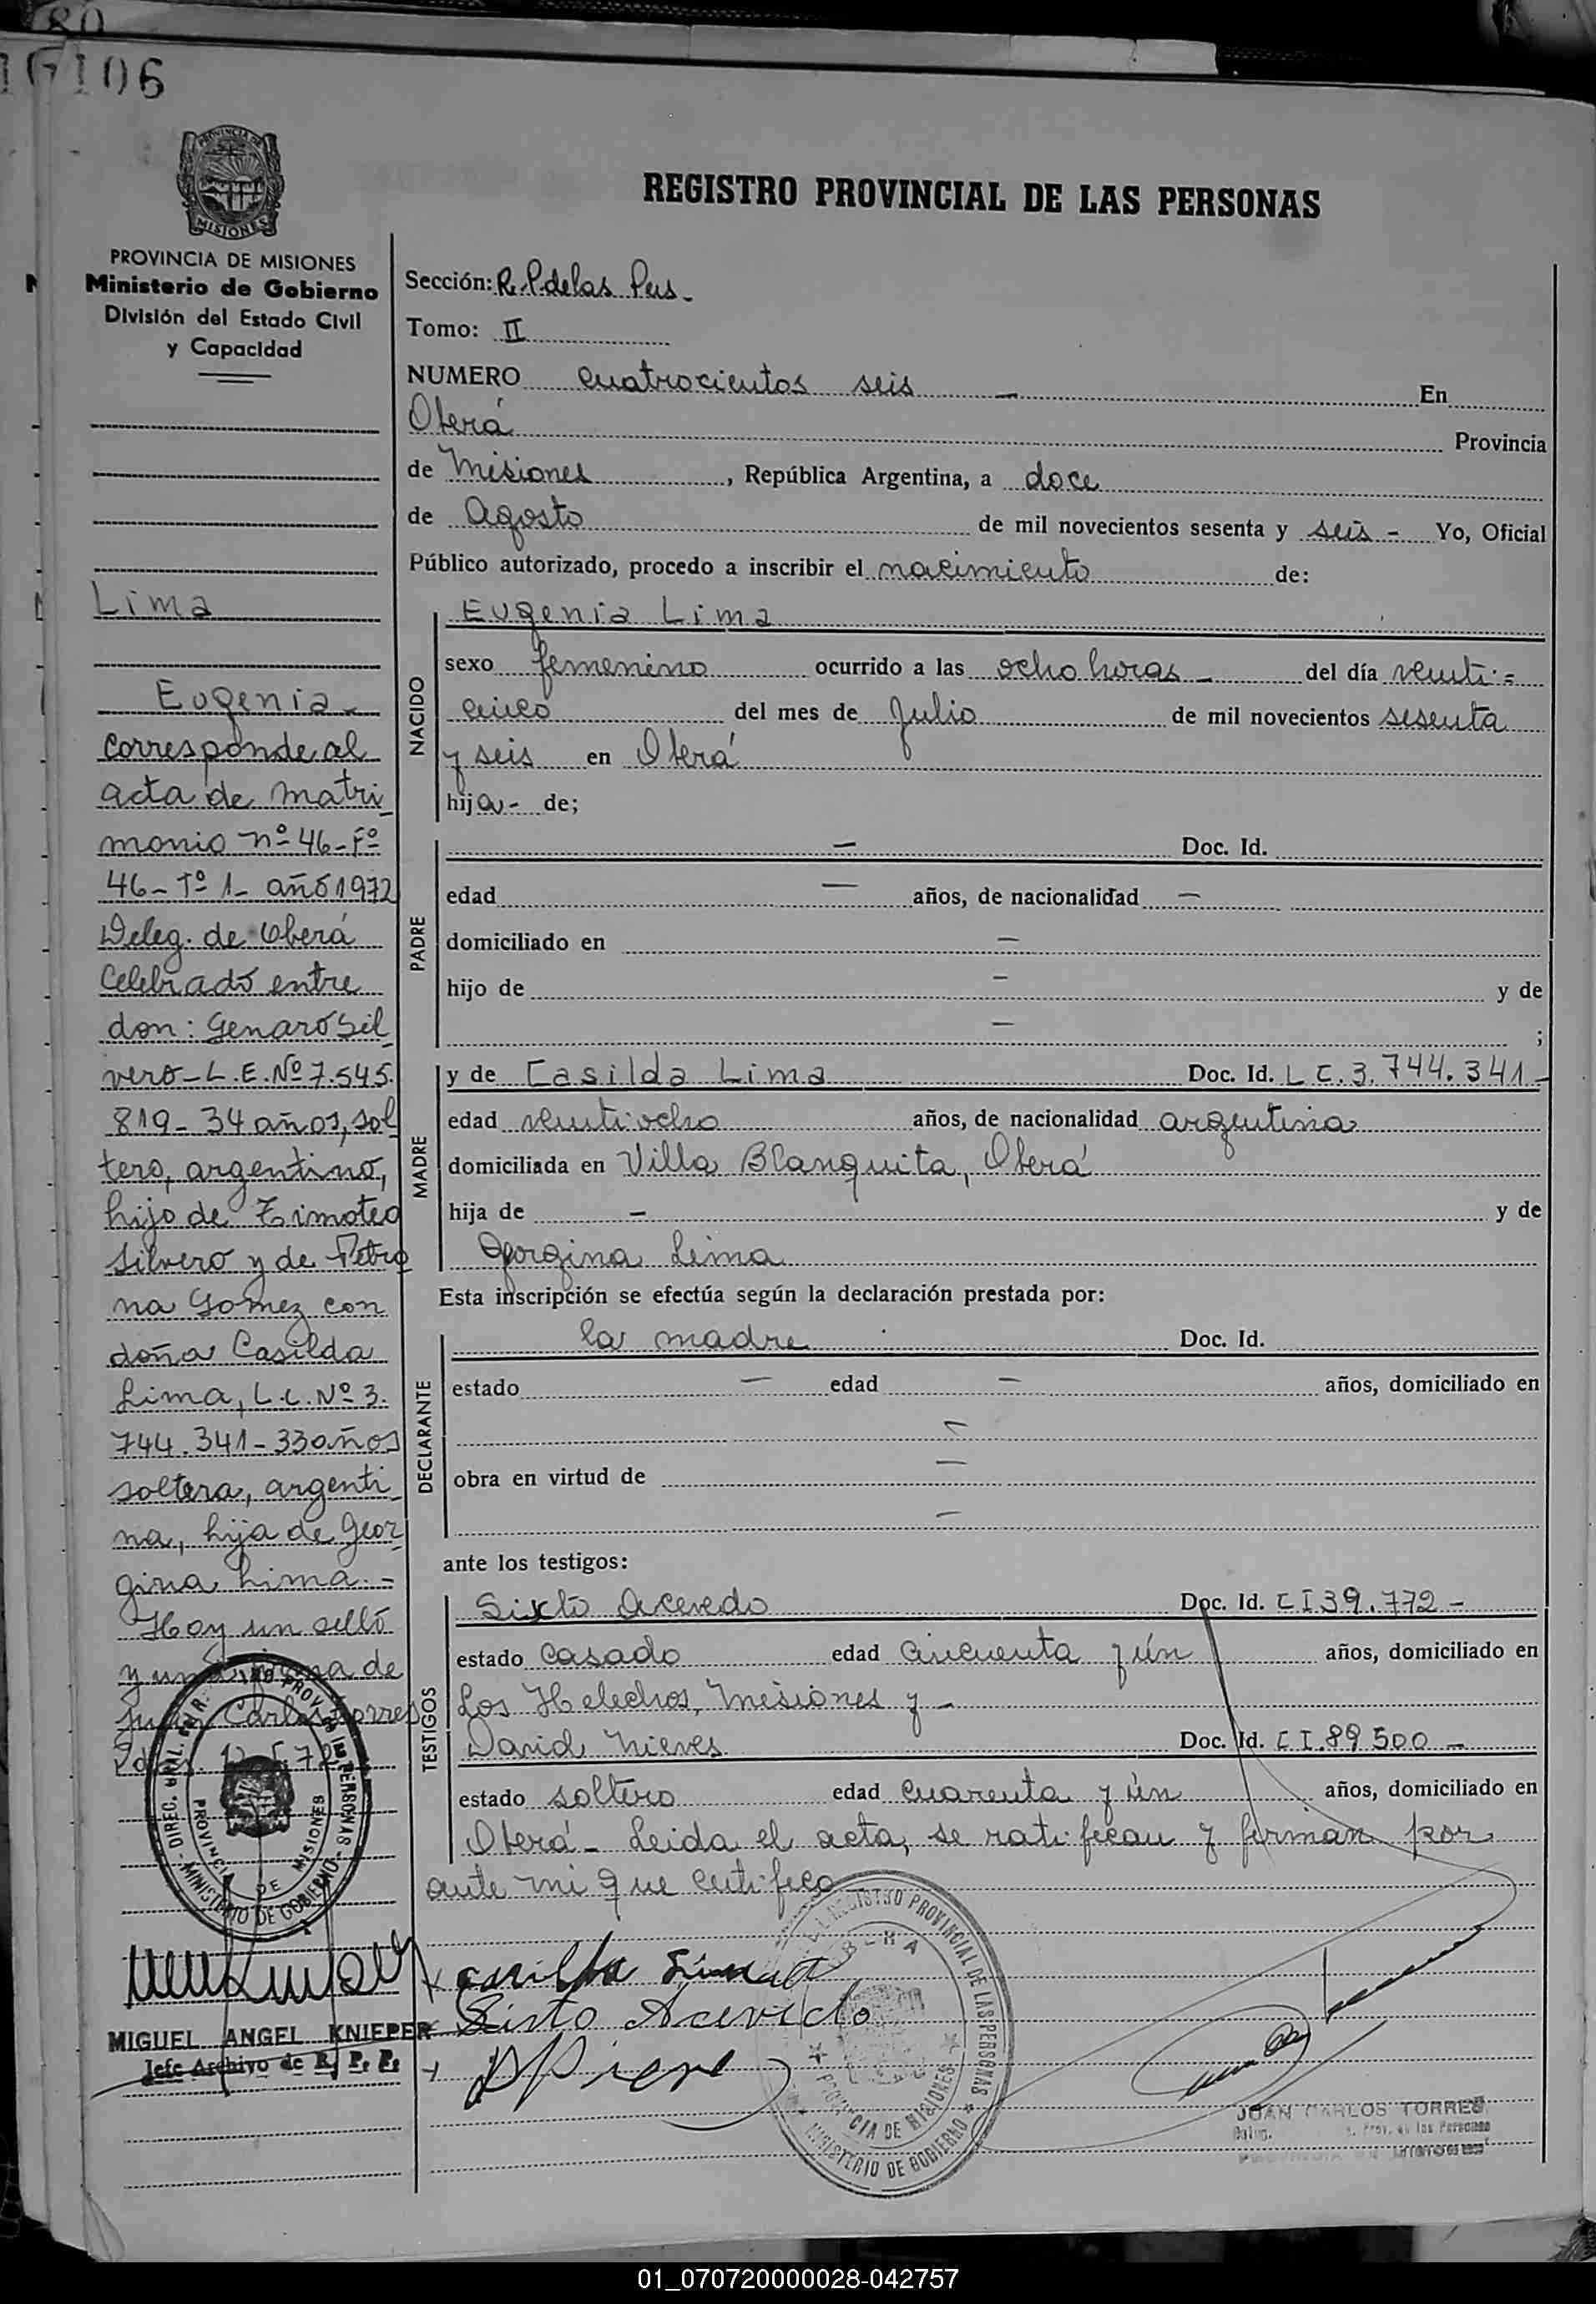 80
106
PROVINCIA DE
MISIONES
PROVINCIA DE MISIONES
Ministerio de Gobierno
División del Estado Civil
y Capacidad
Lima
Eugenia-
corresponde al
acta de matri
monio nº 46-Fº
46-Tº 1- año 1972
Deleg. de Oberá
Celebrado entre
don: Genaro Sil
vero-L.E.Nº 7.545.
819-34 años, sol
tero, argentino,
hijo de Timoteo
Silvero y de Petro
na Gomez con
doña Casilda
Lima, L.C.Nº 3.
744.341-33 años
soltera, argenti
na, hija de Geor
gina Lima.-
Hay un sello
y una firma de
Juan Carlos Torres
DIREC. GRAL. DEL R. PROV. DE LAS PERSONAS
PROVINCIA DE MISIONES
MINISTERIO DE GOBIERNO
MIGUEL ANGEL KNIEPER
Jefe Archivo de R. P. P.
REGISTRO PROVINCIAL DE LAS PERSONAS
Sección: R.P. de las Pers-
Tomo: II
NUMERO cuatrocientos seis — En
Oberá Provincia
de Misiones, República Argentina, a doce
de Agosto de mil novecientos sesenta y seis - Yo, Oficial
Público autorizado, procedo a inscribir el nacimiento de:
NACIDO
Eugenia Lima
sexo femenino ocurrido a las ocho horas - del día veinti=
cinco del mes de Julio de mil novecientos sesenta
y seis en Oberá
hija- de;
PADRE
— Doc. Id.
edad — años, de nacionalidad —
domiciliado en —
hijo de — y de
— ;
MADRE
y de Casilda Lima Doc. Id. L C. 3.744.341-
edad veintiocho años, de nacionalidad argentina
domiciliada en Villa Blanquita, Oberá
hija de — y de
Georgina Lima
Esta inscripción se efectúa según la declaración prestada por:
DECLARANTE
la madre Doc. Id.
estado — edad — años, domiciliado en
—
obra en virtud de —
—
ante los testigos:
TESTIGOS
Sixto Acevedo Doc. Id. C I 39.772 -
estado casado edad cincuenta y ún años, domiciliado en
Los Helechos, Misiones y -
David Nieves Doc. Id. C I. 89500 -
estado soltero edad cuarenta y ún años, domiciliado en
Oberá- Leida el acta, se ratifican y firman por
ante mi que certifico
casilda Lima
Sixto Acevedo
REGISTRO PROVINCIAL DE LAS PERSONAS
OBERA
PROVINCIA DE MISIONES
MINISTERIO DE GOBIERNO
JUAN CARLOS TORRES
Prov. de las Personas
01_070720000028-042757